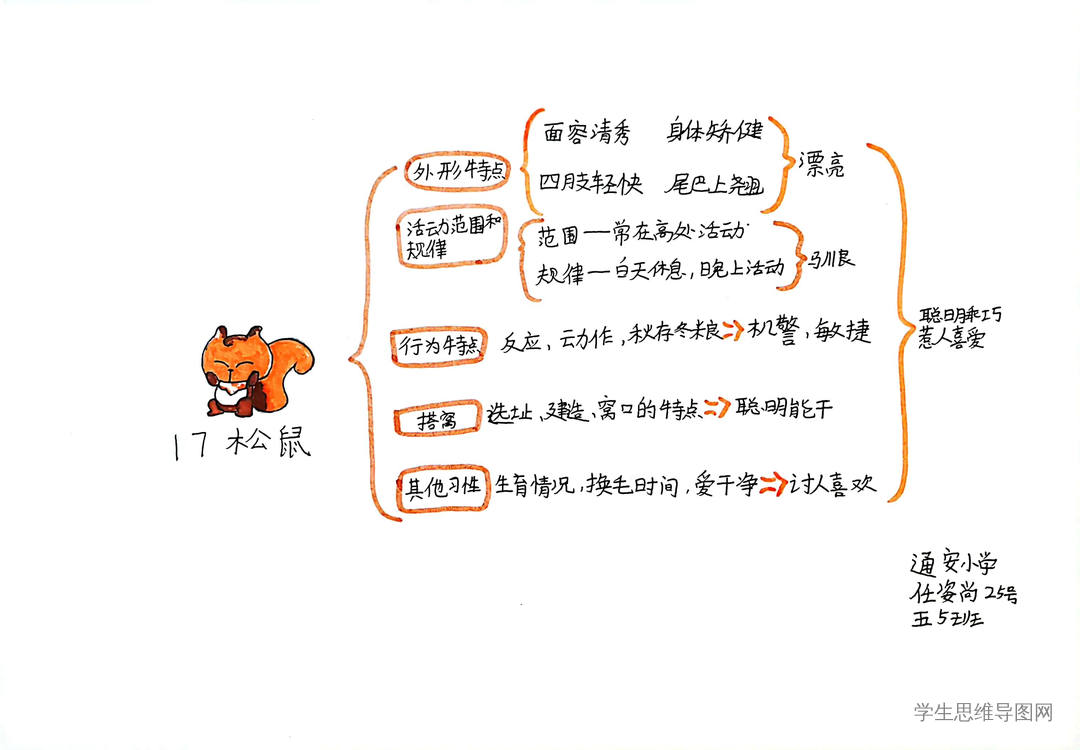 17 松鼠
外形特点
面容清秀 身体矫健
四肢轻快 尾巴上翘
漂亮
活动范围和
规律
范围—常在高处活动
规律—白天休息,晚上活动
驯良
行为特点
反应、动作,秋存冬粮⇒机警,敏捷
搭窝
选址、建造、窝口的特点⇒聪明能干
其他习性
生育情况,换毛时间,爱干净⇒讨人喜欢
聪明乖巧
惹人喜爱
通安小学
任姿尚 25号
五5班
学生思维导图网